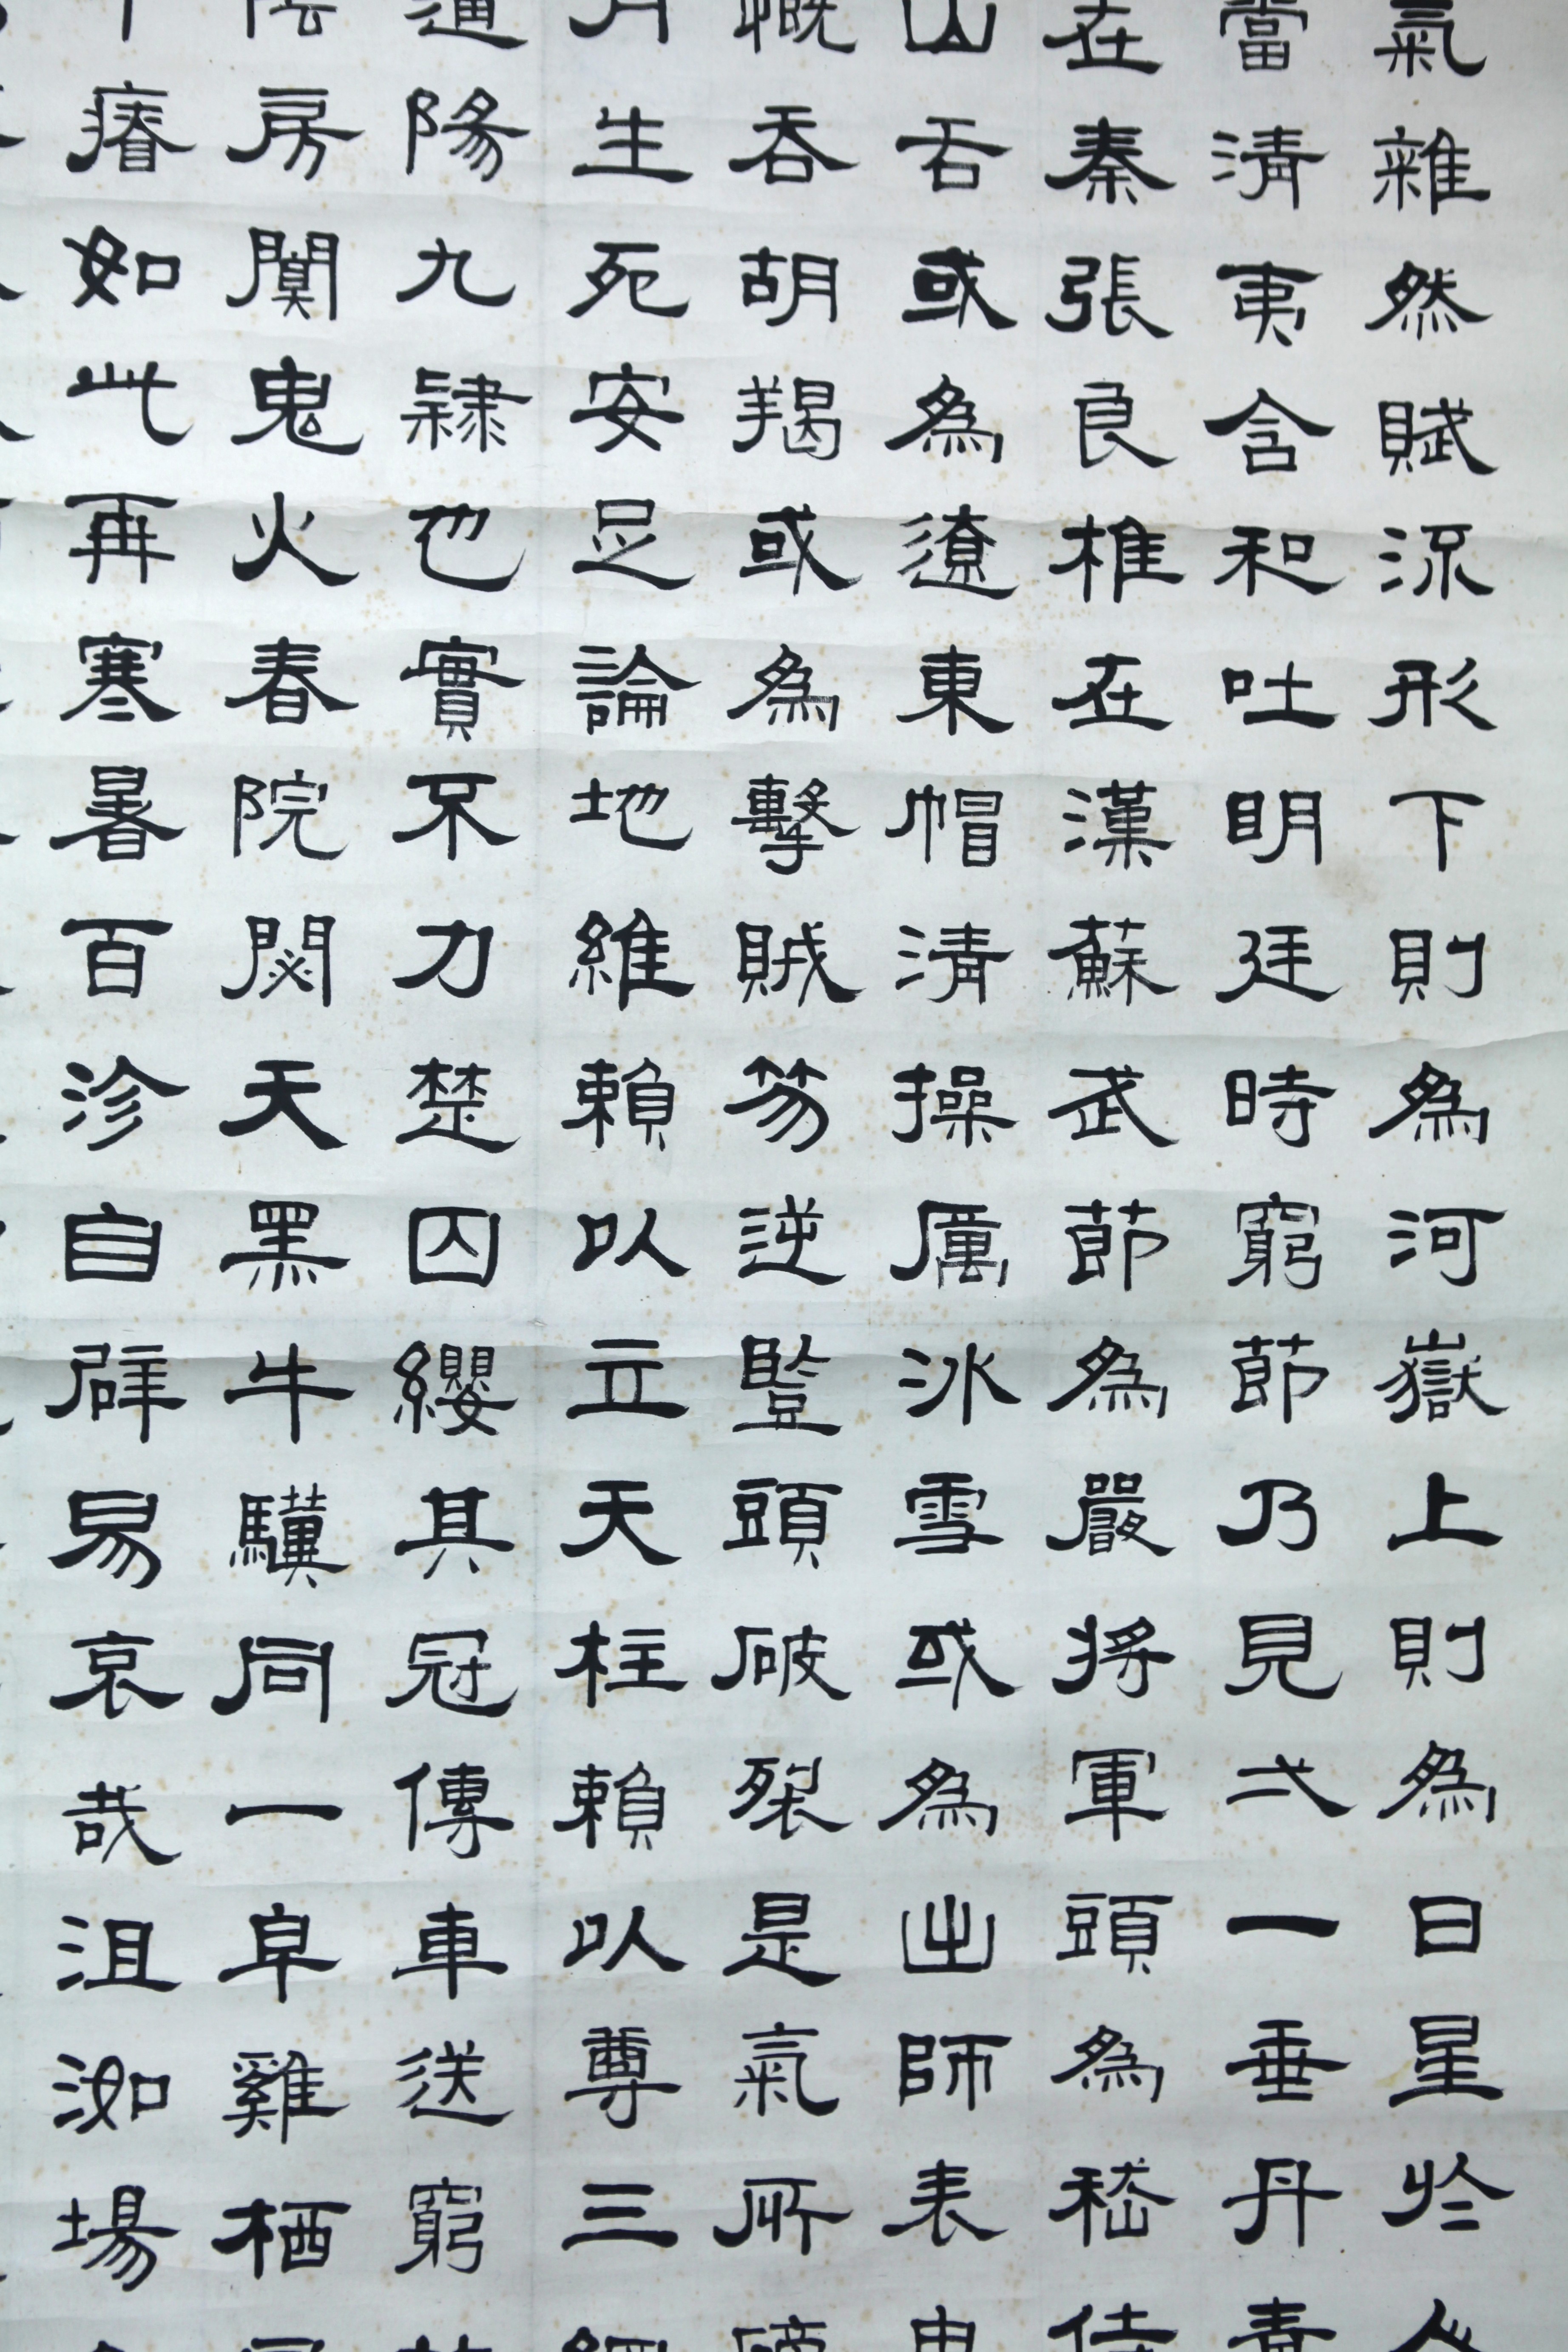 氣雜然賦流形下則為河嶽上則為日星於人
當清夷含和吐明廷時窮節乃見弌一垂丹青
在秦張良椎在漢蘇武節為嚴將軍頭為嵇侍
山舌或為遼東帽清操厲冰雪或為出師表鬼
慨吞胡羯或為擊賊笏逆豎頭破裂是氣所磅
月生死安足論地維賴以立天柱賴以尊三綱
遘陽九隸也實不力楚囚纓其冠傳車送窮
陰房闃鬼火春院閟天黑牛驥同一皁雞栖
中瘠如此再寒暑百沴自辟易哀哉沮洳場